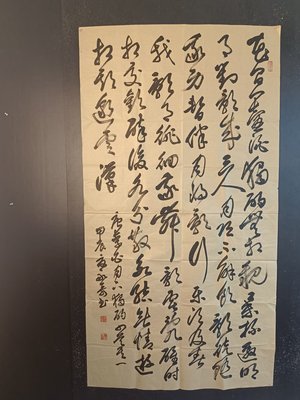 花間一壺酒獨酌無相親舉杯邀明
月對影成三人月既不解飲影徒隨
我身暫伴月將影行樂須及春
我歌月徘徊我舞影零亂醒時
相交歡醉後各分散永結無情遊
相期邈雲漢
唐李白月下獨酌其一
甲辰書